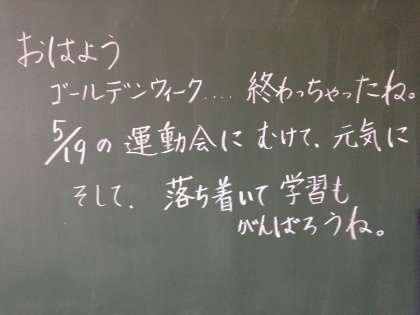 おはよう
ゴールデンウィーク.... 終わっちゃったね。
5/19の運動会にむけて、元気に
そして、落ち着いて学習も
がんばろうね。